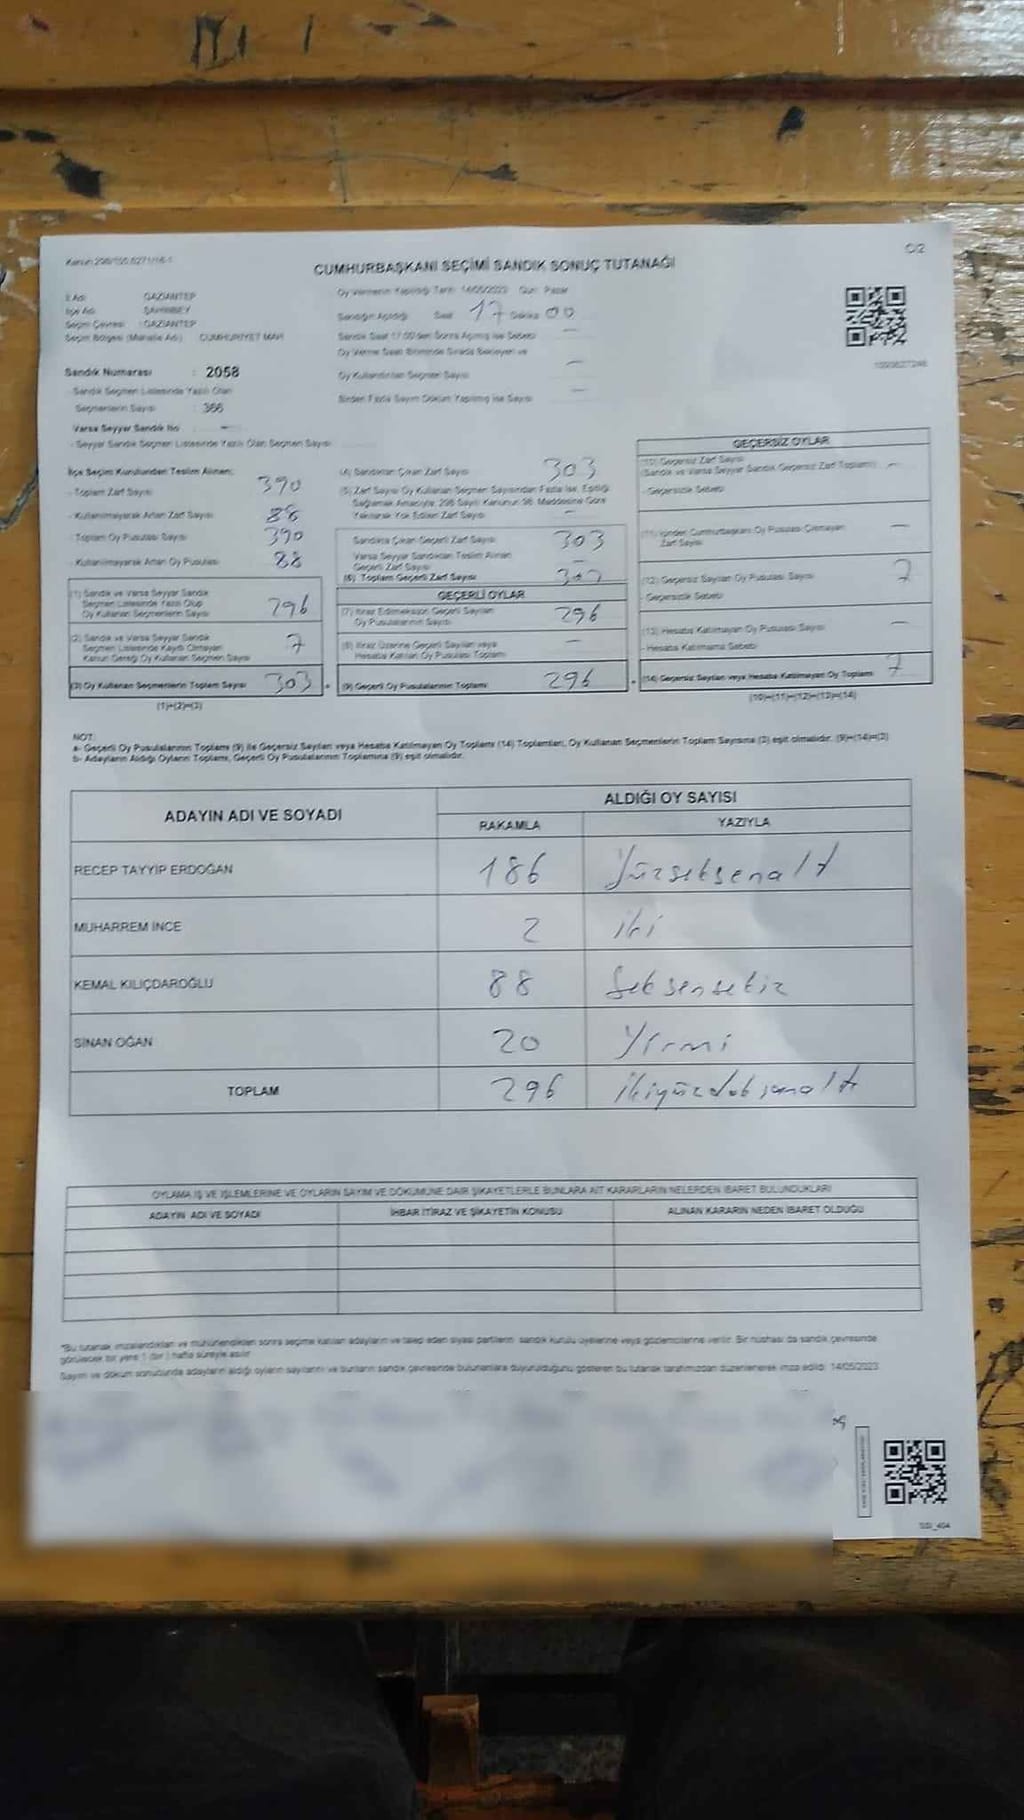 Kanun:298/105,6271/16-1
C/2
CUMHURBAŞKANI SEÇİMİ SANDIK SONUÇ TUTANAĞI
İl Adı : GAZİANTEP
İlçe Adı : ŞAHİNBEY
Seçim Çevresi : GAZİANTEP
Seçim Bölgesi (Mahalle Adı) : CUMHURİYET MAH
Oy Vermenin Yapıldığı Tarih: 14/05/2023 Gün: Pazar
Sandığın Açıldığı Saat 17 Dakika 00
Sandık Saat 17:00'den Sonra Açılmış İse Sebebi —
Oy Verme Saati Bitiminde Sırada Bekleyen ve
Oy Kullandırılan Seçmen Sayısı —
Birden Fazla Sayım Döküm Yapılmış İse Sayısı —
Sandık Numarası : 2058
- Sandık Seçmen Listesinde Yazılı Olan
Seçmenlerin Sayısı : 366
Varsa Seyyar Sandık No —
- Seyyar Sandık Seçmen Listesinde Yazılı Olan Seçmen Sayısı
İlçe Seçim Kurulundan Teslim Alınan;
- Toplam Zarf Sayısı 390
- Kullanılmayarak Artan Zarf Sayısı 88
- Toplam Oy Pusulası Sayısı 390
- Kullanılmayarak Artan Oy Pusulası 88
(1) Sandık ve Varsa Seyyar Sandık
Seçmen Listesinde Yazılı Olup
Oy Kullanan Seçmenlerin Sayısı 296
(2) Sandık ve Varsa Seyyar Sandık
Seçmen Listesinde Kayıtlı Olmayan
Kanun Gereği Oy Kullanan Seçmen Sayısı 7
(3) Oy Kullanan Seçmenlerin Toplam Sayısı 303
(1)+(2)=(3)
(4) Sandıktan Çıkan Zarf Sayısı 303
(5) Zarf Sayısı Oy Kullanan Seçmen Sayısından Fazla İse, Eşitliği
Sağlamak Amacıyla, 298 Sayılı Kanunun 98. Maddesine Göre
Yakılarak Yok Edilen Zarf Sayısı —
Sandıkta Çıkan Geçerli Zarf Sayısı 303
Varsa Seyyar Sandıktan Teslim Alınan
Geçerli Zarf Sayısı —
(6) Toplam Geçerli Zarf Sayısı 303
GEÇERLİ OYLAR
(7) İtiraz Edilmeksizin Geçerli Sayılan
Oy Pusulalarının Sayısı 296
(8) İtiraz Üzerine Geçerli Sayılan veya
Hesaba Katılan Oy Pusulası Toplamı —
(9) Geçerli Oy Pusulalarının Toplamı 296
GEÇERSİZ OYLAR
(10) Geçersiz Zarf Sayısı
(Sandık ve Varsa Seyyar Sandık Geçersiz Zarf Toplamı) —
- Geçersizlik Sebebi
(11) İçinden Cumhurbaşkanı Oy Pusulası Çıkmayan
Zarf Sayısı —
(12) Geçersiz Sayılan Oy Pusulası Sayısı 7
- Geçersizlik Sebebi
(13) Hesaba Katılmayan Oy Pusulası Sayısı —
- Hesaba Katılmama Sebebi
(14) Geçersiz Sayılan veya Hesaba Katılmayan Oy Toplamı 7
(10)+(11)+(12)+(13)=(14)
NOT:
a- Geçerli Oy Pusulalarının Toplamı (9) ile Geçersiz Sayılan veya Hesaba Katılmayan Oy Toplamı (14) Toplamları, Oy Kullanan Seçmenlerin Toplam Sayısına (3) eşit olmalıdır. (9)+(14)=(3)
b- Adayların Aldığı Oyların Toplamı, Geçerli Oy Pusulalarının Toplamına (9) eşit olmalıdır.
ADAYIN ADI VE SOYADI
ALDIĞI OY SAYISI
RAKAMLA YAZIYLA
RECEP TAYYİP ERDOĞAN 186 Yüzseksenaltı
MUHARREM İNCE 2 iki
KEMAL KILIÇDAROĞLU 88 Seksensekiz
SİNAN OĞAN 20 Yirmi
TOPLAM 296 ikiyüzdoksanaltı
OYLAMA İŞ VE İŞLEMLERİNE VE OYLARIN SAYIM VE DÖKÜMÜNE DAİR ŞİKAYETLERLE BUNLARA AİT KARARLARIN NELERDEN İBARET BULUNDUKLARI
ADAYIN ADI VE SOYADI
İHBAR İTİRAZ VE ŞİKAYETİN KONUSU
ALINAN KARARIN NEDEN İBARET OLDUĞU
*Bu tutanak imzalandıktan ve mühürlendikten sonra seçime katılan adayların ve talep eden siyasi partilerin sandık kurulu üyelerine veya gözlemcilerine verilir. Bir nüshası da sandık çevresinde
görülecek bir yere 1 (bir ) hafta süreyle asılır.
Sayım ve döküm sonucunda adayların aldığı oyların sayılarını ve bunların sandık çevresinde bulunanlara duyurulduğunu gösteren bu tutanak tarafımızdan düzenlenerek imza edildi. 14/05/2023